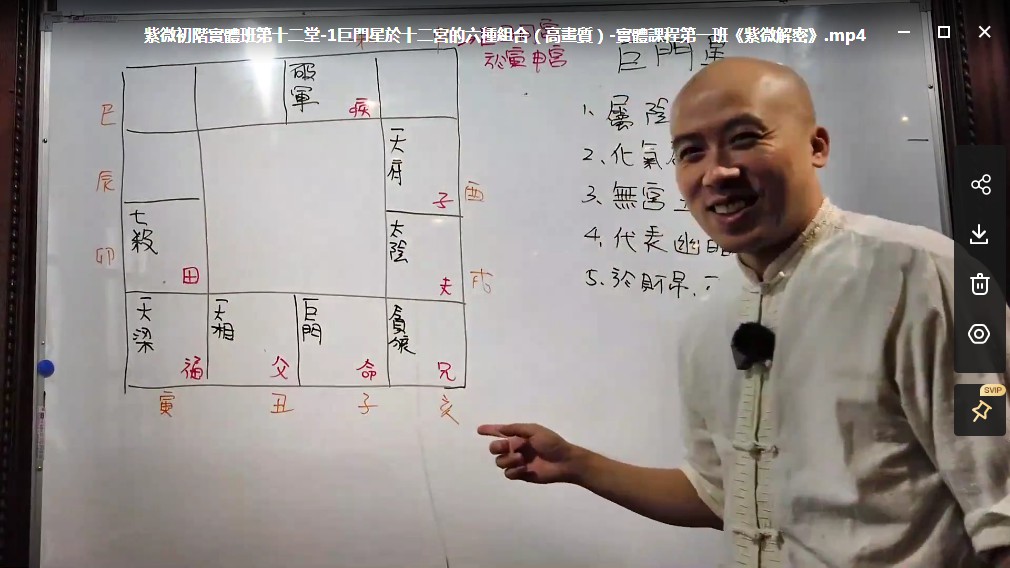 紫微初階實體班第十二堂-1巨門星於十二宮的六種組合（高畫質）-實體課程第一班《紫微解密》.mp4
於寅申宮
巨門星
破軍
疾
巳
天府
子
酉
辰
七殺
田
卯
太陰
夫
戌
天梁
福
天相
父
巨門
命
貪狼
兄
寅
丑
子
亥
1、屬陰
2、化氣
3、無宮
4、代表幽暗
5、於財帛、
SVIP